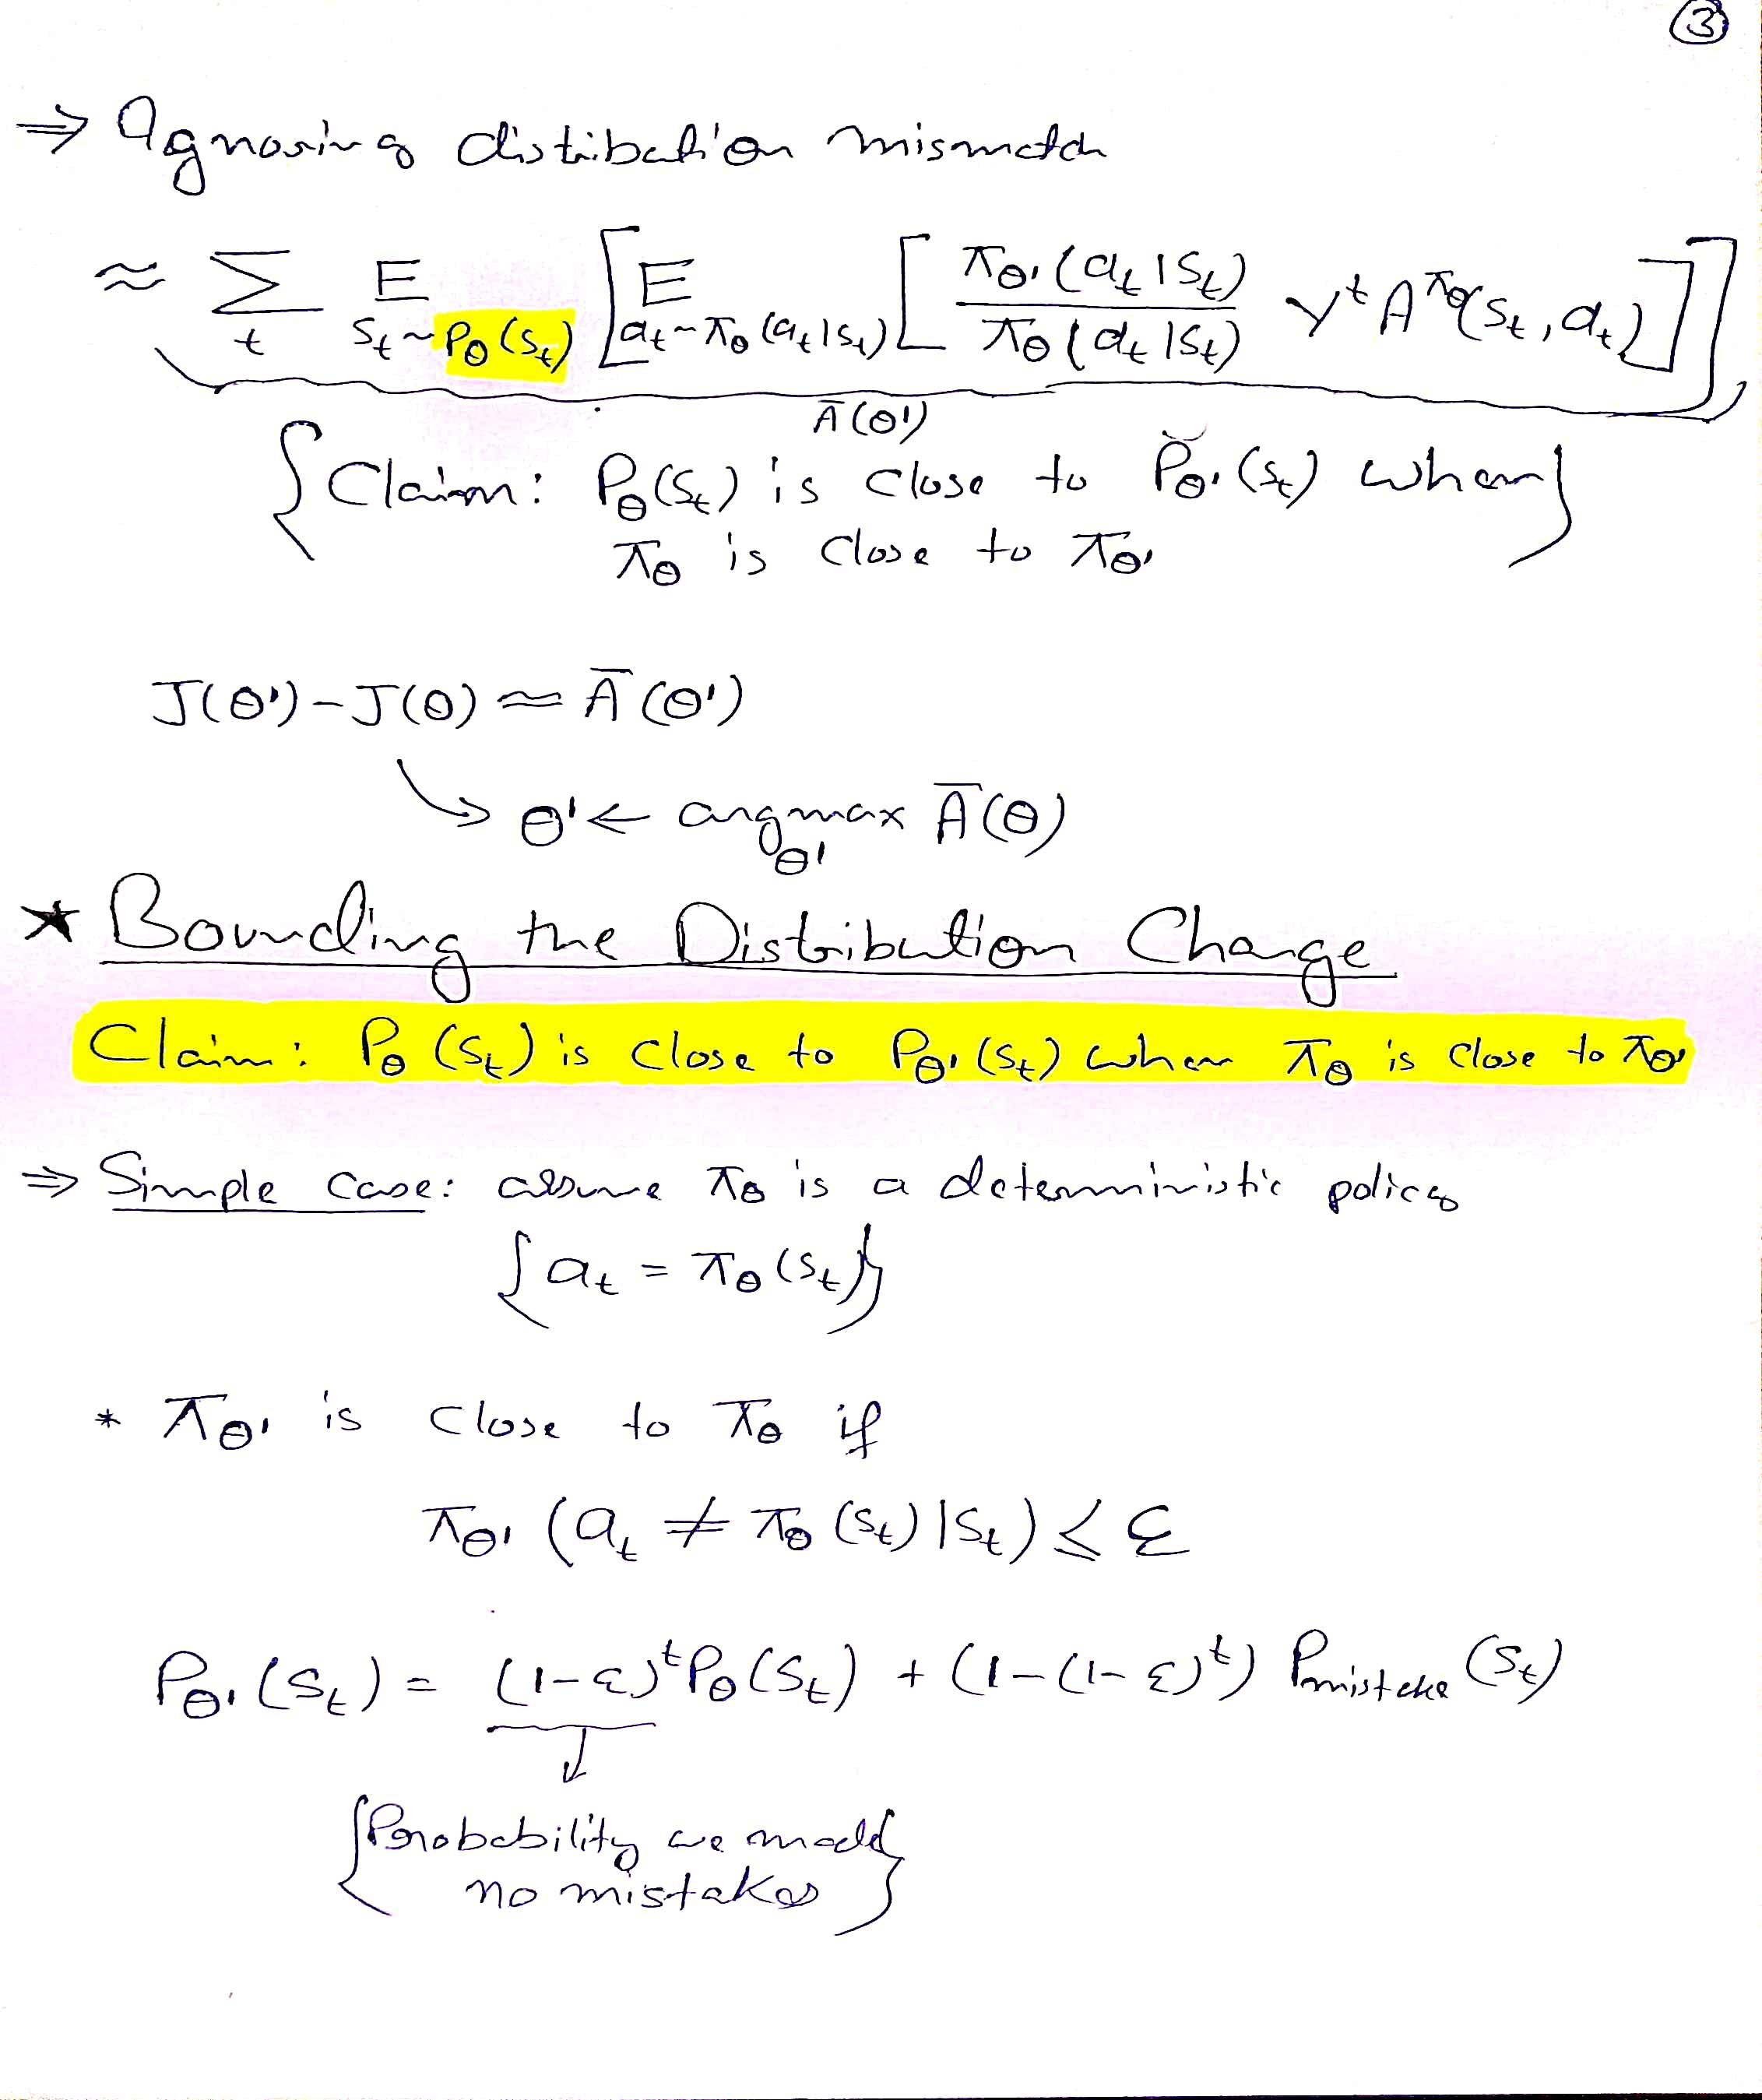 ③
⇒ Ignoring distribution mismatch
≈ Σ_t E_{s_t ~ P_θ(s_t)} [ E_{a_t ~ π_θ(a_t|s_t)} [ π_θ'(a_t|s_t) / π_θ(a_t|s_t) γ^t A^{π_θ}(s_t, a_t) ] ]
Ā(θ')
{ Claim: P_θ(s_t) is close to P_θ'(s_t) when
π_θ is close to π_θ' }
J(θ') - J(θ) ≈ Ā(θ')
↳ θ' ← argmax_θ' Ā(θ)
★ Bounding the Distribution Change
Claim: P_θ(s_t) is close to P_θ'(s_t) when π_θ is close to π_θ'
⇒ Simple case: assume π_θ is a deterministic policy
{ a_t = π_θ(s_t) }
* π_θ' is close to π_θ if
π_θ'(a_t ≠ π_θ(s_t) | s_t) ≤ ε
P_θ'(s_t) = (1-ε)^t P_θ(s_t) + (1-(1-ε)^t) P_mistake(s_t)
↓
{ Probability we made
no mistakes }